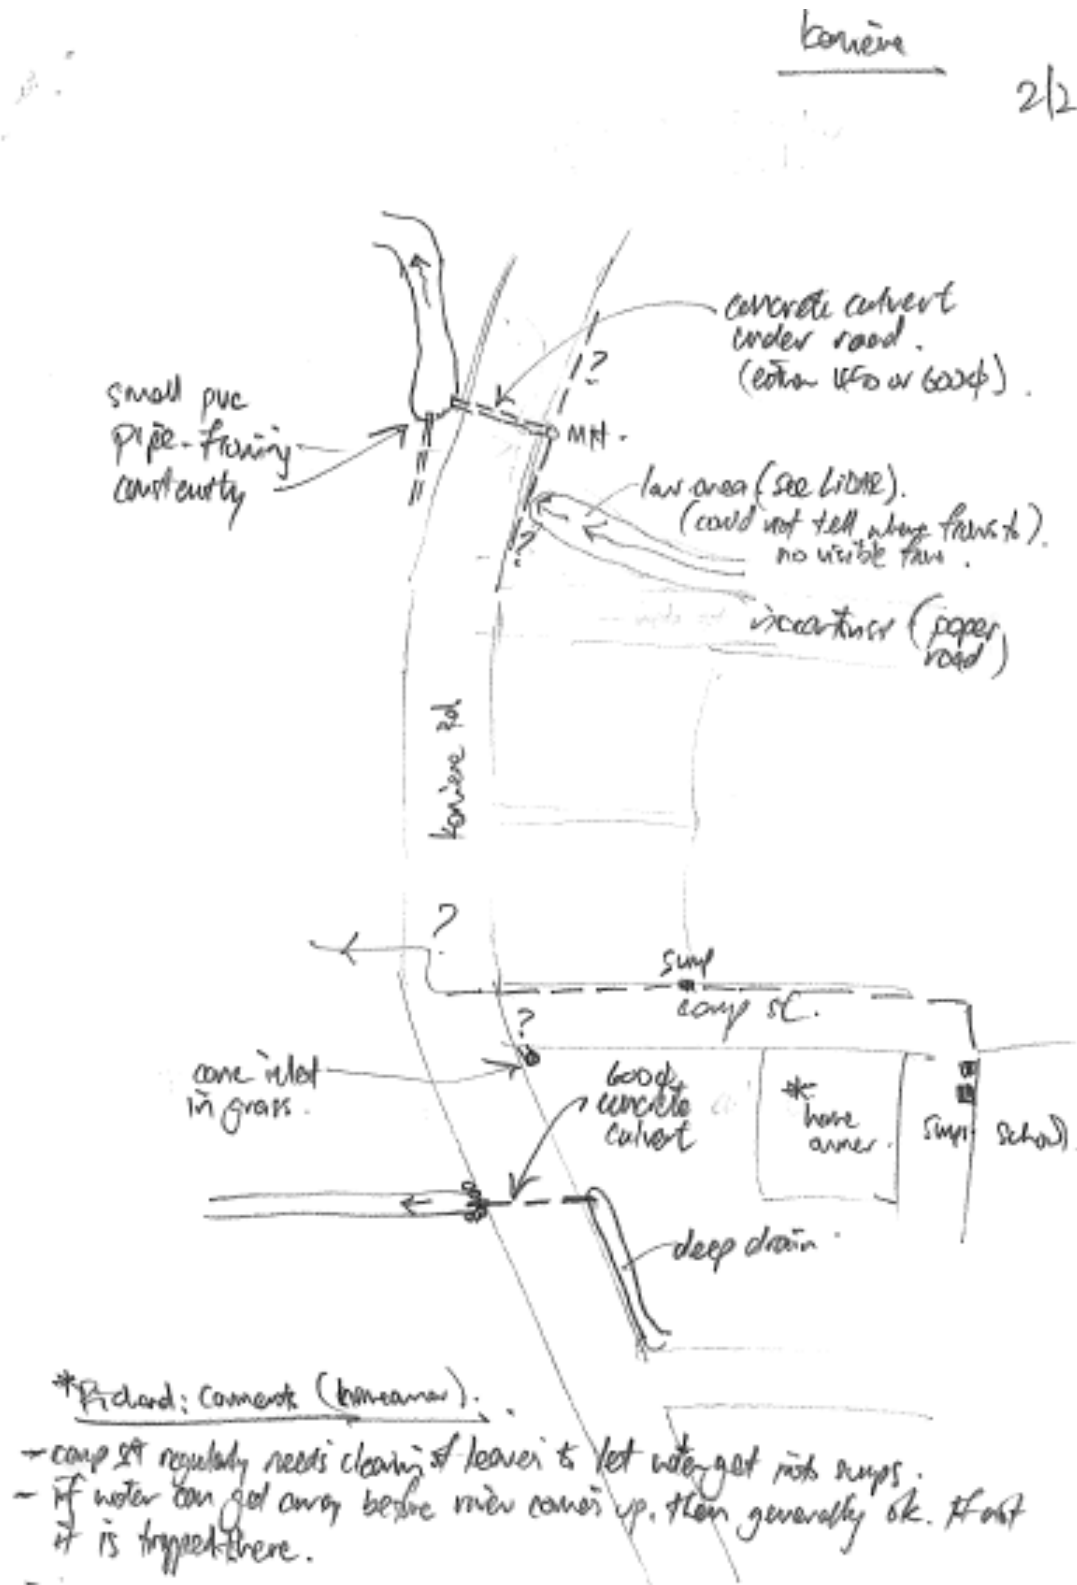 Kaniere
2/2
concrete culvert
under road.
(either 450 or 600ϕ).
?
small pvc
pipe - flowing
constantly
MH.
low area (see LiDAR).
(could not tell where flows to).
no visible flow.
?
(paper
road)
Kaniere Rd
?
sump
camp st.
?
conc inlet
in grass.
600ϕ
concrete
culvert
*
home
owner.
sumps
school
deep drain.
*Richard: Comments (homeowner).
- camp st regularly needs cleaning of leaves to let water get into sumps.
- if water can get away before river comes up, then generally ok. If not
it is trapped there.